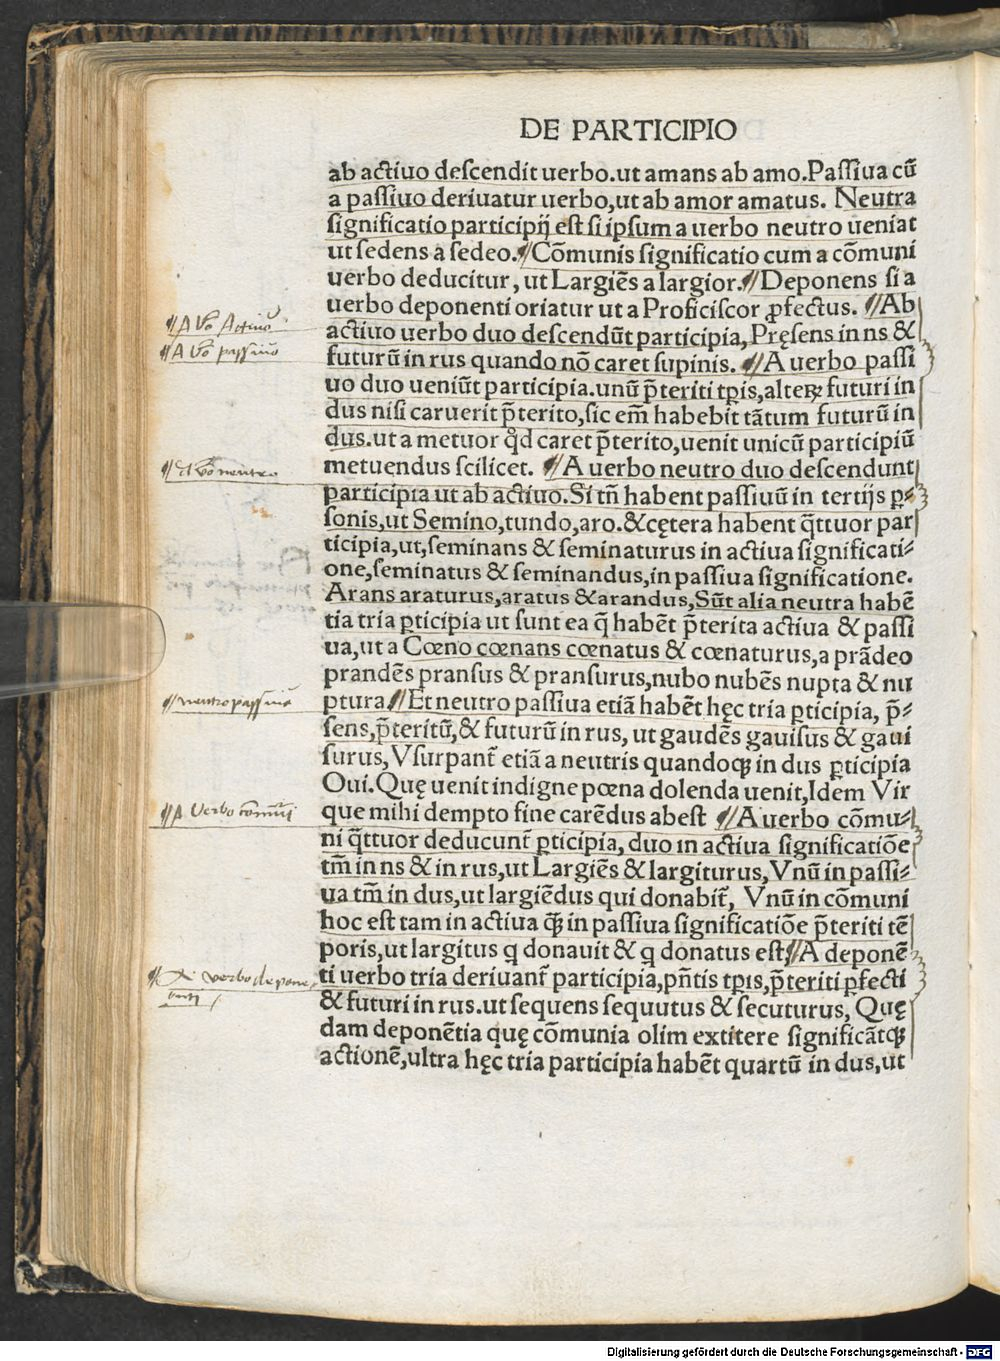 DE PARTICIPIO
ab actiuo deſcendit uerbo.ut amans ab amo.Paſſiua cū
a paſſiuo deriuatur uerbo,ut ab amor amatus. Neutra
ſignificatio participij eſt ſi ipſum a uerbo neutro ueniat
ut ſedens a ſedeo.¶Cōmunis ſignificatio cum a cōmuni
uerbo deducitur, ut Largiēs a largior.¶Deponens ſi a
uerbo deponenti oriatur ut a Proficiſcor ꝓfectus. ¶Ab
¶A vbo Actiuo
actiuo uerbo duo deſcendūt participia, Pręſens in ns &
¶A vbo paſſiuo
futurū in rus quando nō caret ſupinis. ¶A uerbo paſſi
uo duo ueniūt participia.unū p̄teriti tꝑis,alteꝝ futuri in
dus niſi caruerit p̄terito,ſic em̄ habebit tātum futurū in
dus.ut a metuor qd̓ caret p̄terito,uenit unicū participiū
¶A vbo neutro
metuendus ſcilicet. ¶A uerbo neutro duo deſcendunt
participia ut ab actiuo.Si tn̄ habent paſſiuū in tertijs ꝑ⸗
ſonis,ut Semino,tundo,aro.&cętera habent q̄ttuor par
ticipia,ut,ſeminans & ſeminaturus in actiua ſignificati⸗
one,ſeminatus & ſeminandus,in paſſiua ſignificatione.
Arans araturus,aratus &arandus,Sūt alia neutra habē
tia tria ꝑticipia ut ſunt ea q̄ habēt p̄terita actiua & paſſi
ua,ut a Cœno cœnans cœnatus & cœnaturus,a prādeo
prandēs pranſus & pranſurus,nubo nubēs nupta & nu
¶neutropaſſiuū
ptura.¶Et neutro paſſiua etiā habēt hęc tria ꝑticipia, p̄⸗
ſens,p̄teritū,& futurū in rus, ut gaudēs gauiſus & gaui
ſurus,Vſurpant̄ etiā a neutris quandoqꝫ in dus ꝑticipia
Oui.Quę uenit indigne pœna dolenda uenit,Idem Vir
¶A Verbo cōmuni
que mihi dempto fine carēdus abeſt ¶A uerbo cōmu⸗
ni q̄ttuor deducunt̄ ꝑticipia, duo in actiua ſignificatiōe
tm̄ in ns & in rus,ut Largiēs & largiturus, Vnū in paſſi⸗
ua tm̄ in dus,ut largiēdus qui donabit̄, Vnū in cōmuni
hoc eſt tam in actiua qꝫ in paſſiua ſignificatiōe p̄teriti tē
poris,ut largitus q donauit & q donatus eſt,¶A deponē
¶De verbo depone
nti
ti uerbo tria deriuant̄ participia,pn̄tis tꝑis,p̄teriti ꝑfecti
& futuri in rus.ut ſequens ſequutus & ſecuturus, Quę
dam deponētia quę cōmunia olim extitere ſignificātqꝫ
actionē,ultra hęc tria participia habēt quartū in dus,ut
Digitalisierung gefördert durch die Deutsche Forschungsgemeinschaft - DFG